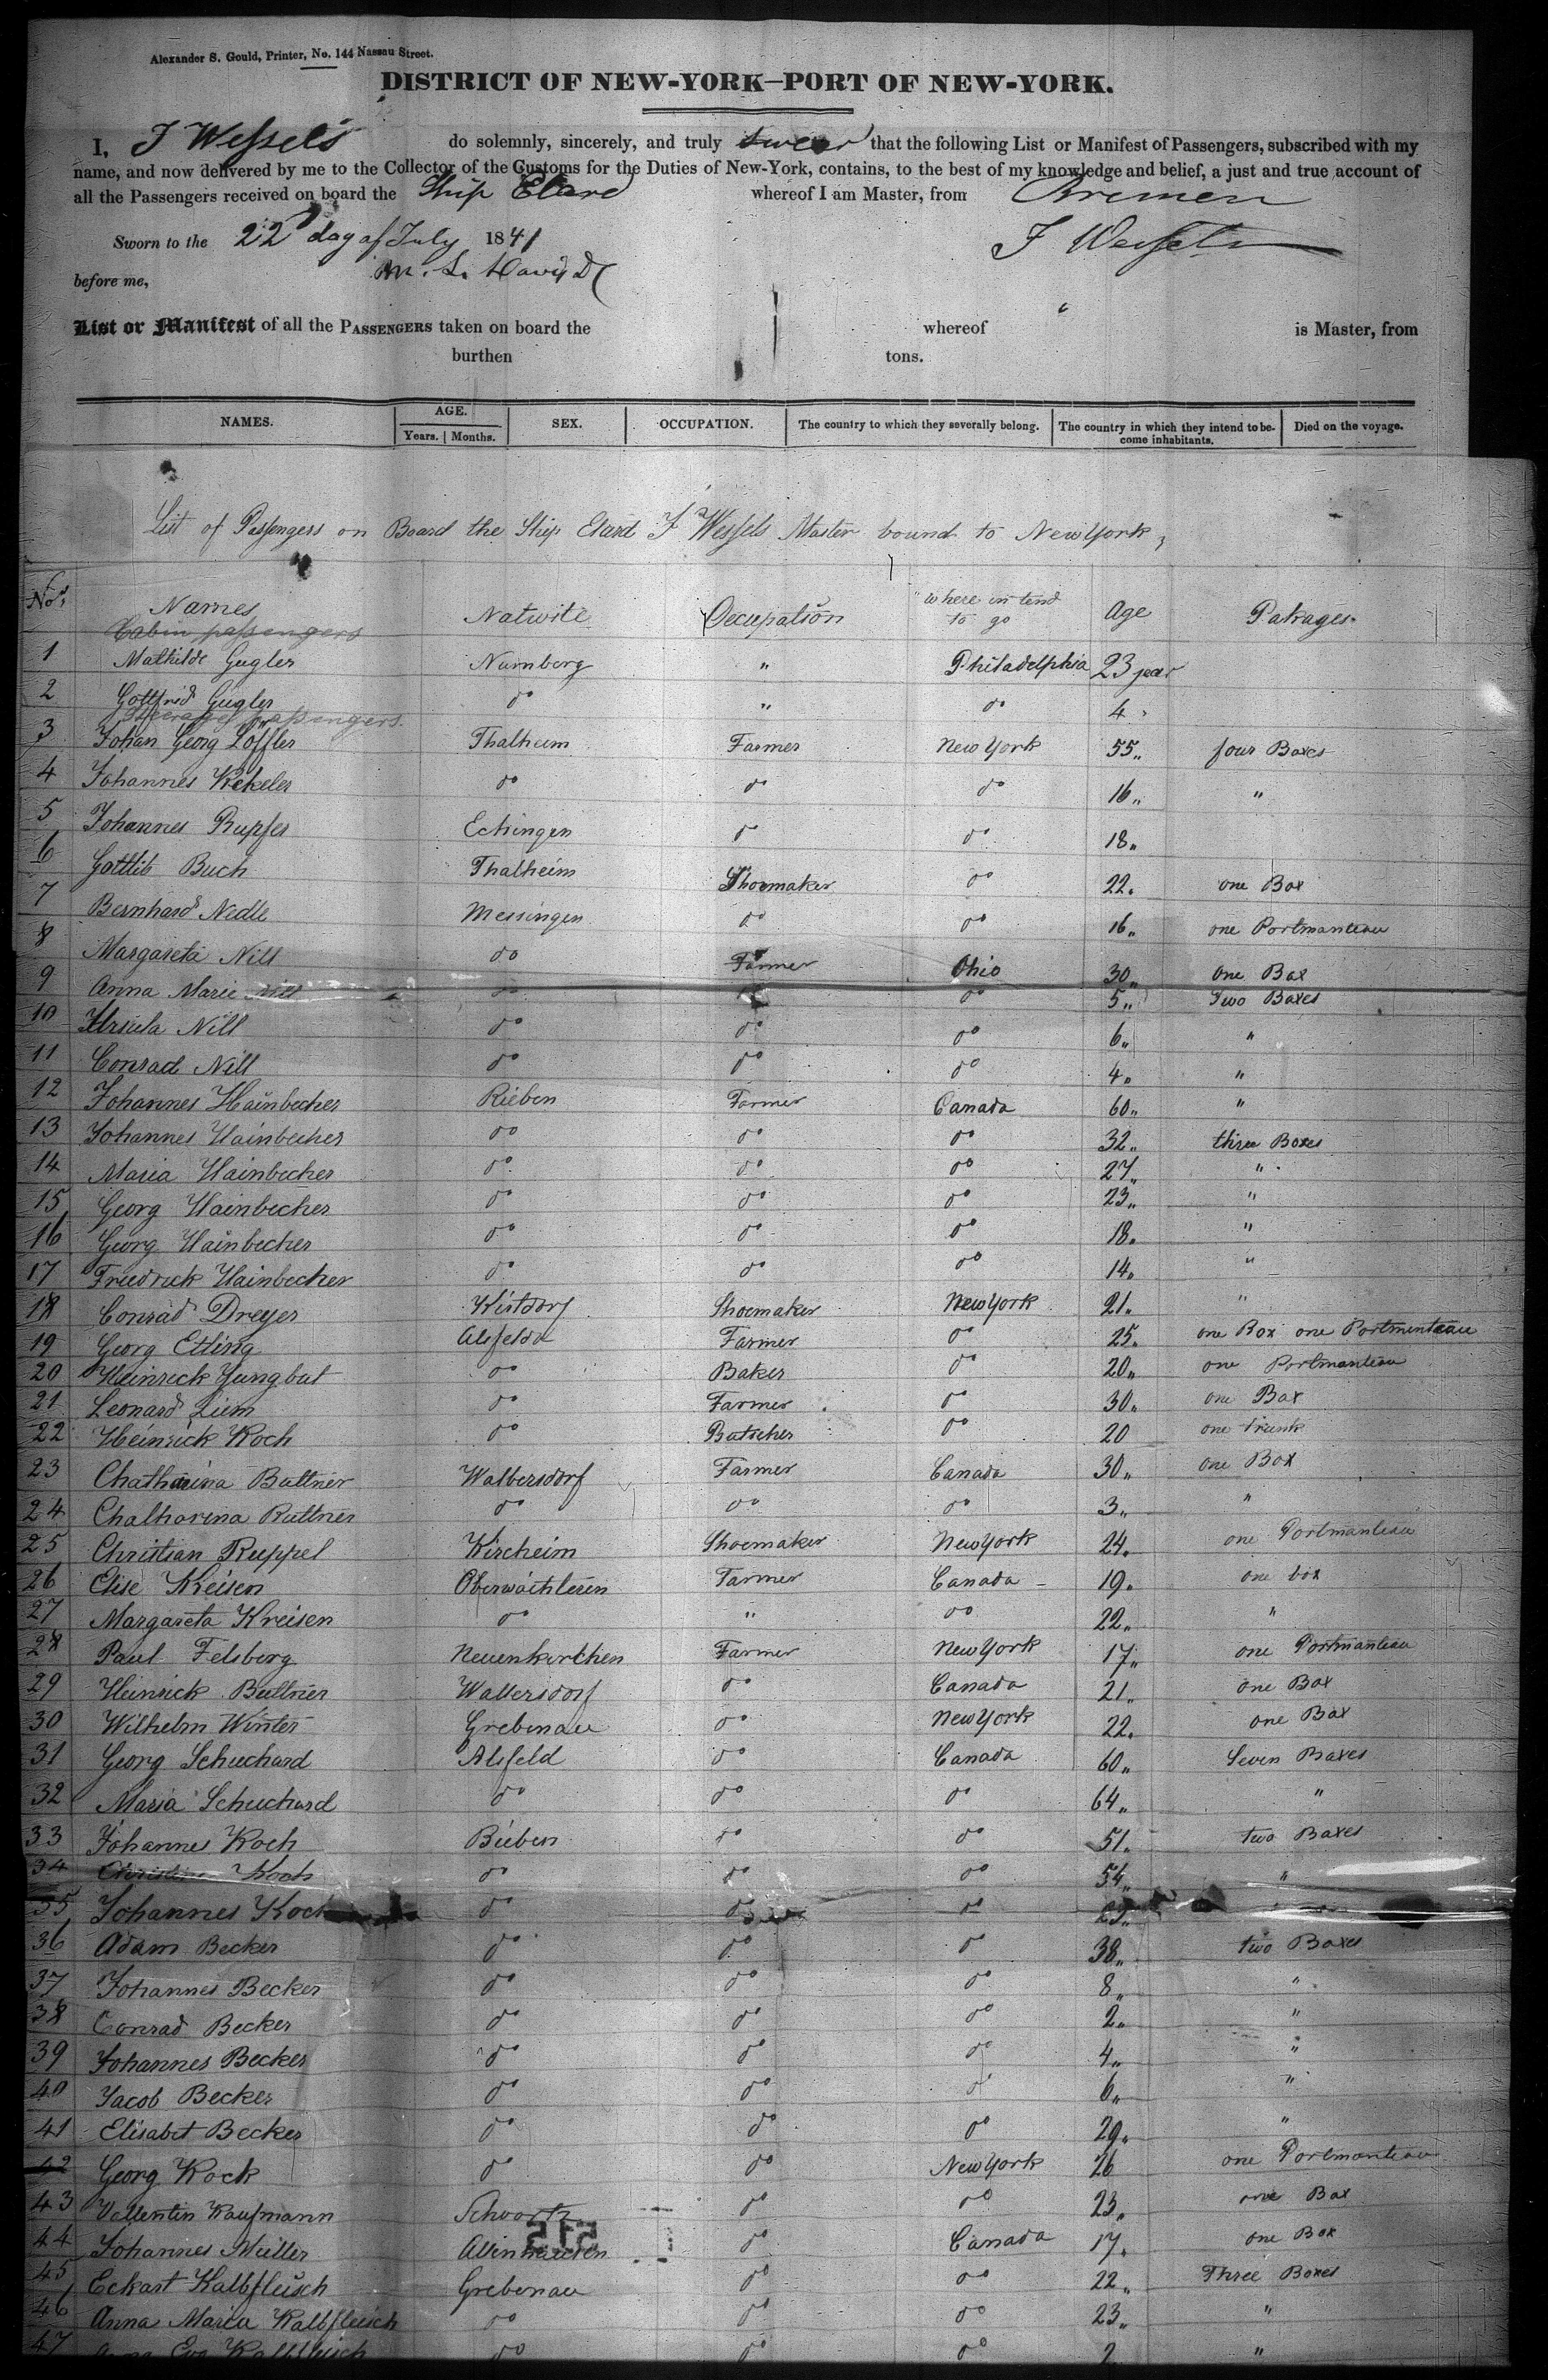 Alexander S. Gould, Printer, No. 144 Nassau Street.
DISTRICT OF NEW-YORK—PORT OF NEW-YORK.
I, J Wessels do solemnly, sincerely, and truly swear that the following List or Manifest of Passengers, subscribed with my
name, and now delivered by me to the Collector of the Customs for the Duties of New-York, contains, to the best of my knowledge and belief, a just and true account of
all the Passengers received on board the Ship Elard whereof I am Master, from Bremen
Sworn to the 22d day of July 1841 J Wessels
before me,
List or Manifest of all the PASSENGERS taken on board the whereof is Master, from
burthen tons.
NAMES. AGE. Years. Months. SEX. OCCUPATION. The country to which they severally belong. The country in which they intend to become inhabitants. Died on the voyage.
List of Passengers on Board the Ship Elard J Wessels Master bound to New York,
Nos. Names Natwite Occupation where intend to go Age Pakages.
Cabin passengers
1 Mathilde Gugler Nurnberg " Philadelphia 23 year
2 Gottfried Gugler do " do 4 "
Steerage passengers
3 Johan Georg Löffler Thalheim Farmer New York 55 " four Boxes
4 Johannes Kekeler do do do 16 " "
5 Johannes Rupfer Echingen do do 18 "
6 Gottlib Buch Thalheim Shoemaker do 22 " one Box
7 Bernhard Nedle Messingen do do 16 " one Portmanteau
8 Margareta Nill do Farmer Ohio 30 " one Box
9 Anna Marie Nill do do 5 " Two Boxes
10 Ursula Nill do do do 6 " "
11 Conrad Nill do do do 4 " "
12 Johannes Hainbecher Rieben Farmer Canada 60 " "
13 Johannes Hainbecher do do do 32 " three Boxes
14 Maria Hainbecher do do do 27 " "
15 Georg Hainbecher do do do 23 " "
16 Georg Hainbecher do do do 18 " "
17 Friedrick Hainbecher do do do 14 " "
18 Conrad Dreyer Kistdorf Shoemaker New York 21 " "
19 Georg Etling Alsfeld Farmer do 25 " one Box one Portmenteau
20 Heinrick Jungbut do Baker do 20 " one Portmanteau
21 Leonard Liem do Farmer do 30 " one Box
22 Heinrick Koch do Butscher do 20 one trunk
23 Chatharina Buttner Walbersdorf Farmer Canada 30 " one Box
24 Chatharina Buttner do do do 3 " "
25 Christian Ruppel Kircheim Shoemaker New York 24 " one Portmanteau
26 Elise Kreisen Farmer Canada 19 " one box
27 Margareta Kreisen do " do 22 " "
28 Paul Felsberg Neuenkirchen Farmer New York 17 " one Portmanteau
29 Heinrick Buttner Wallersdorf do Canada 21 " one Box
30 Wilhelm Winter Grebenau do New York 22 " one Box
31 Georg Schuchard Alsfeld do Canada 60 " Seven Boxes
32 Maria Schuchard do do do 64 " "
33 Johannes Koch Bieben do do 51 " two Boxes
34 Christine Koch do do do 54 " "
35 Johannes Koch do do do
36 Adam Becker do do do 38 " two Boxes
37 Johannes Becker do do do 8 " "
38 Conrad Becker do do do 2 " "
39 Johannes Becker do do do 4 " "
40 Jacob Becker do do do 6 " "
41 Elisabet Becker do do do 29 " "
42 Georg Kock do do New York 26 one Portmanteau
43 Vallentin Kaufmann do do 23 " one Box
44 Johannes Müller do Canada 17 " one Box
45 Eckart Kalbfleisch Grebenau do do 22 " Three Boxes
46 Anna Maria Kalbfleisch do do do 23 " "
47 Anna Eva Kalbfleisch do do do 2 "